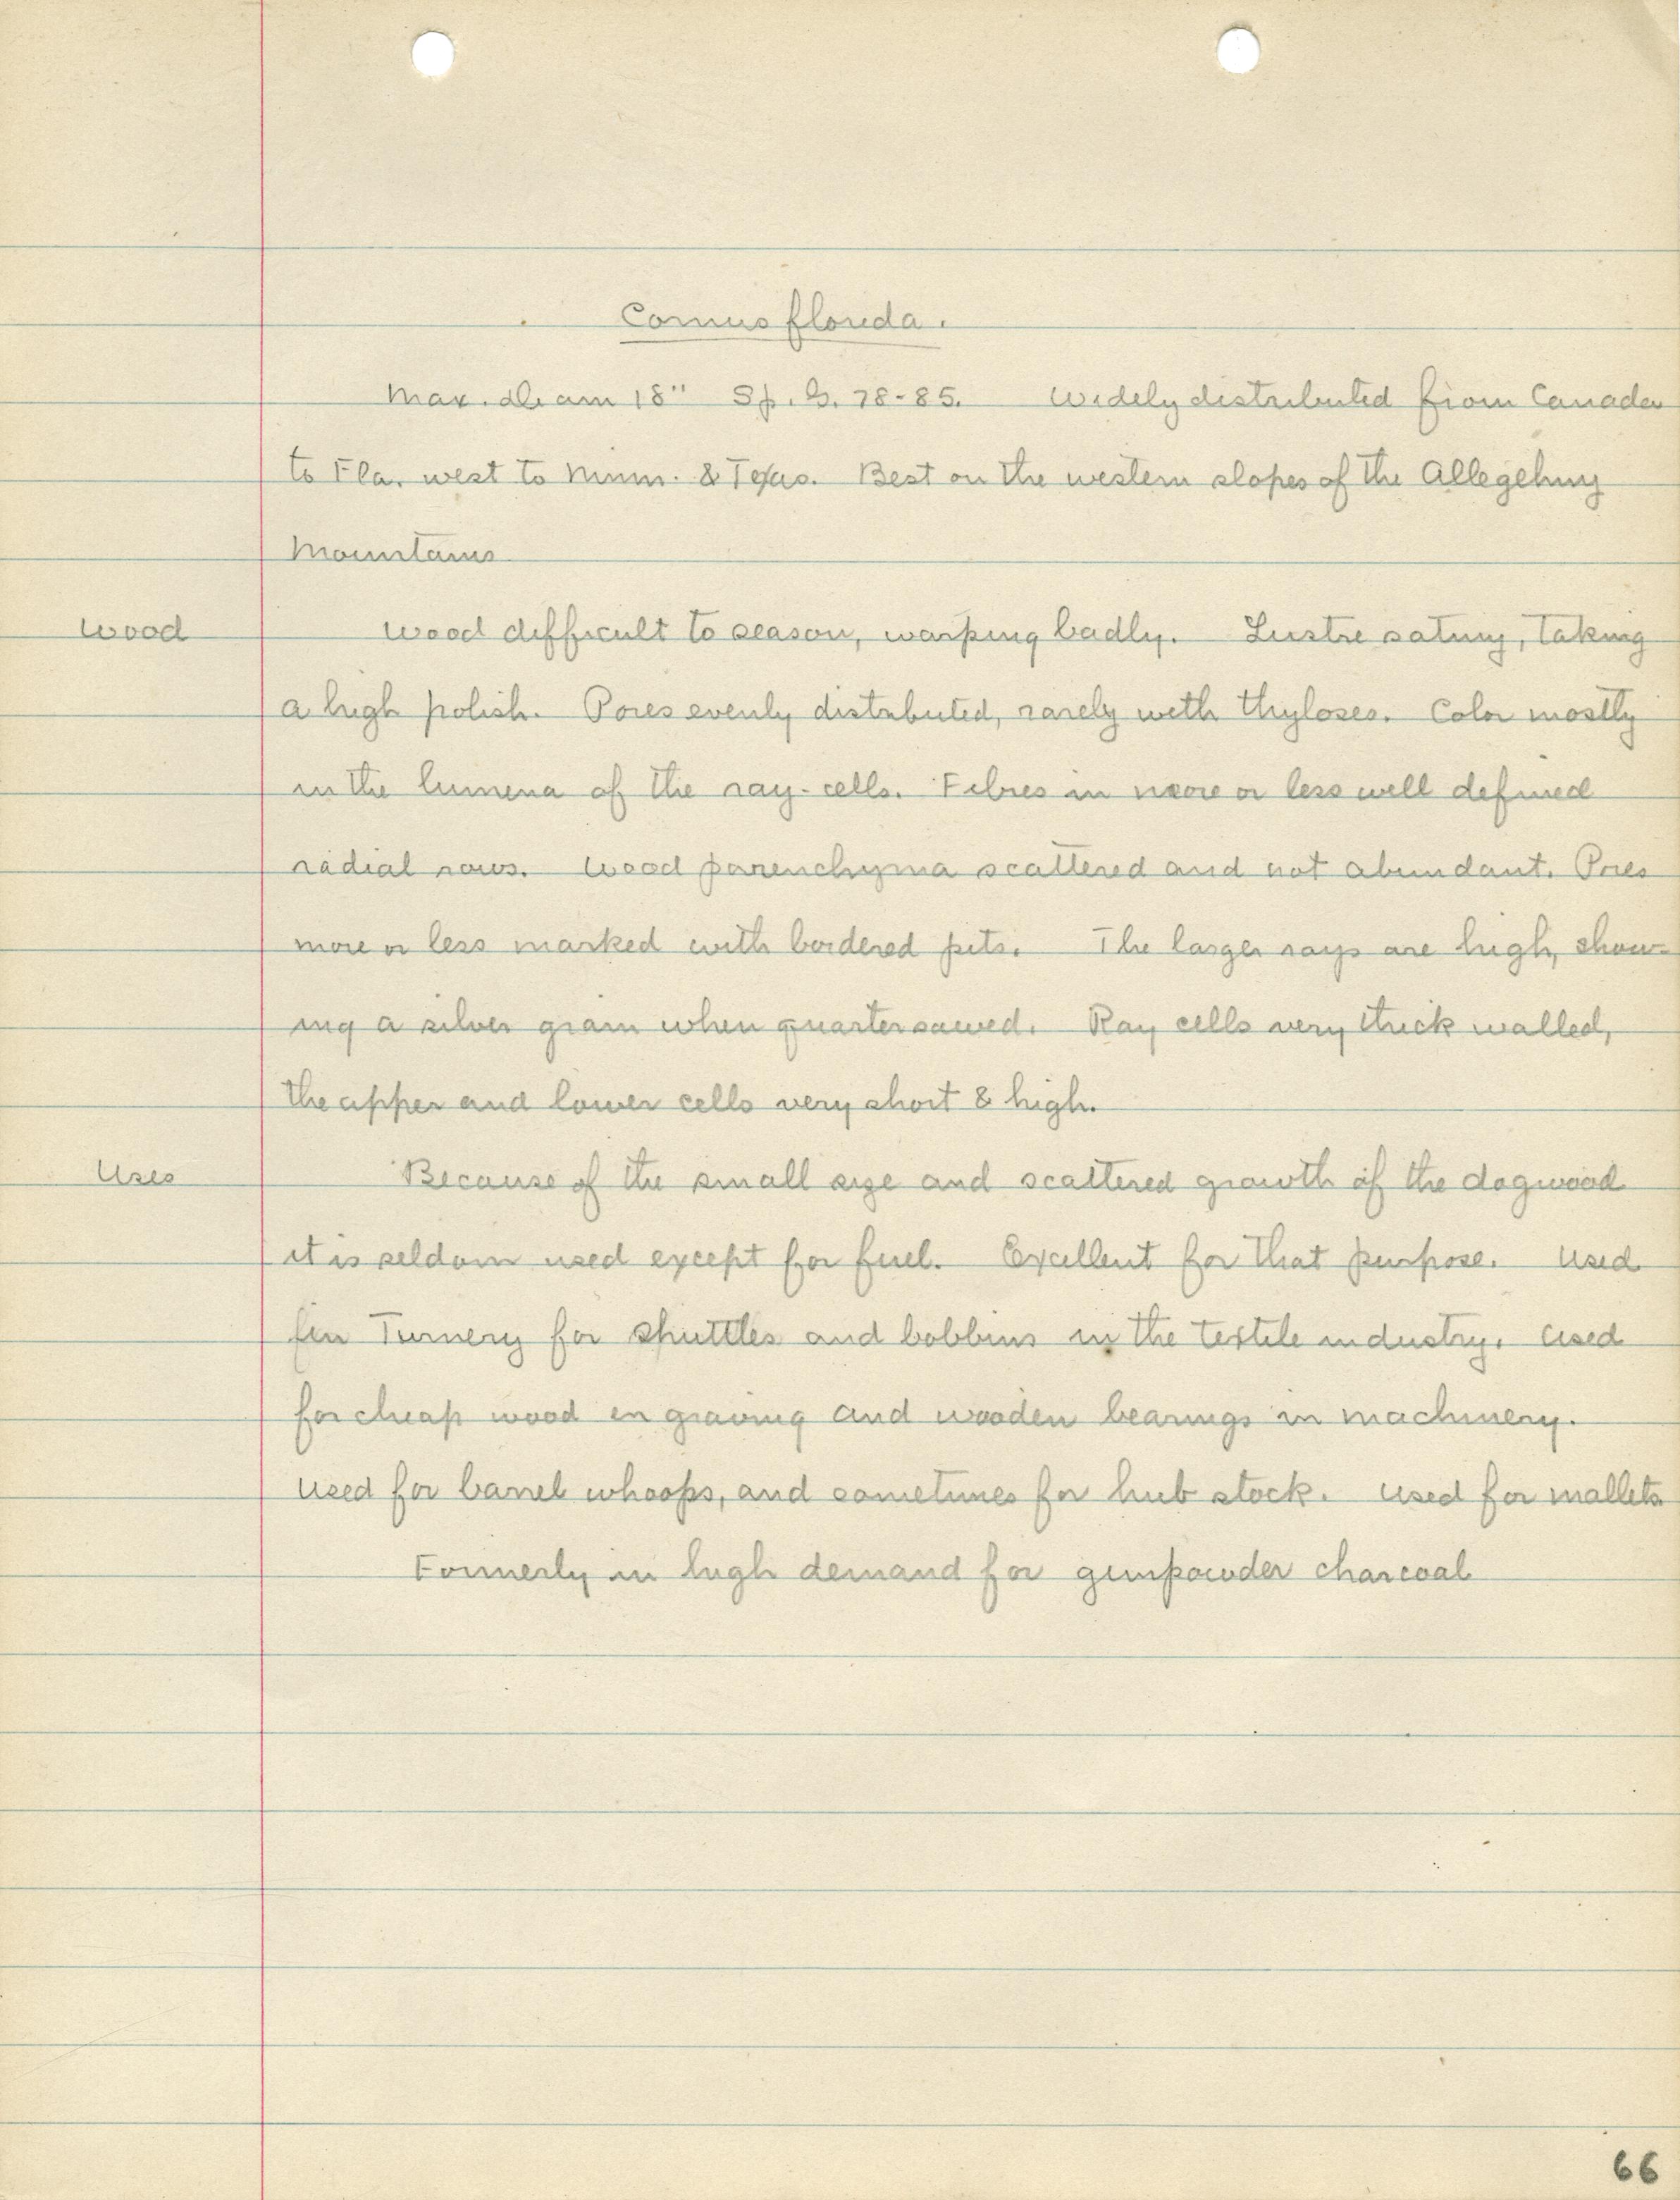 Cornus florida.
Max. diam 18" Sp. G. 78-85. Widely distributed from Canada
to Fla. west to Minn. & Texas. Best on the western slopes of the Allegehny
Mountains
Wood
Wood difficult to season, warping badly. Lustre satiny, taking
a high polish. Pores evenly distributed, rarely with thyloses. Color mostly
in the lumena of the ray-cells. Fibres in more or less well defined
radial rows. Wood parenchyma scattered and not abundant. Pores
more or less marked with bordered pits. The larger rays are high, show-
ing a silver grain when quartersawed. Ray cells very thick walled,
the upper and lower cells very short & high.
Uses
Because of the small size and scattered growth of the dogwood
it is seldom used except for fuel. Excellent for that purpose. Used
fin Turnery for shuttles and bobbins in the textile industry. Used
for cheap wood engraving and wooden bearings in machinery.
Used for barrel whoops, and sometimes for hub stock. Used for mallets
Formerly in high demand for gunpowder charcoal
66